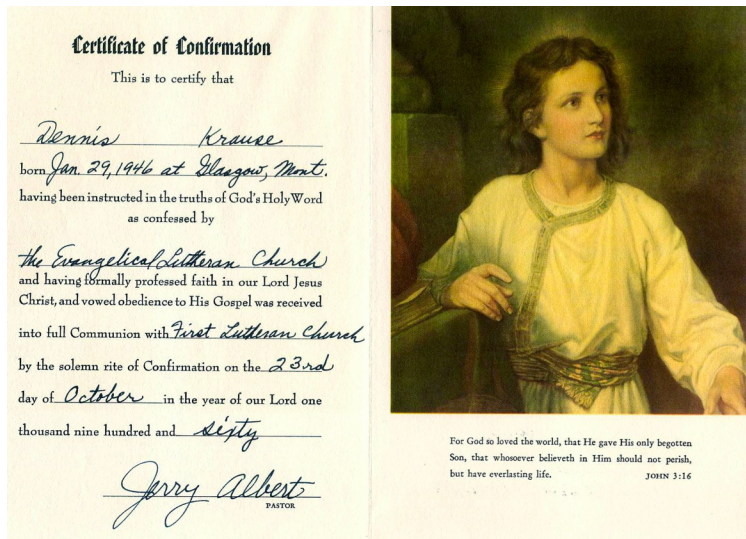 Certificate of Confirmation
This is to certify that
Dennis Krause
born Jan. 29, 1946 at Glasgow, Mont.
having been instructed in the truths of God's Holy Word
as confessed by
the Evangelical Lutheran Church
and having formally professed faith in our Lord Jesus
Christ, and vowed obedience to His Gospel was received
into full Communion with First Lutheran Church
by the solemn rite of Confirmation on the 23rd
day of October in the year of our Lord one
thousand nine hundred and sixty
Jerry Albert
PASTOR
For God so loved the world, that He gave His only begotten
Son, that whosoever believeth in Him should not perish,
but have everlasting life. JOHN 3:16